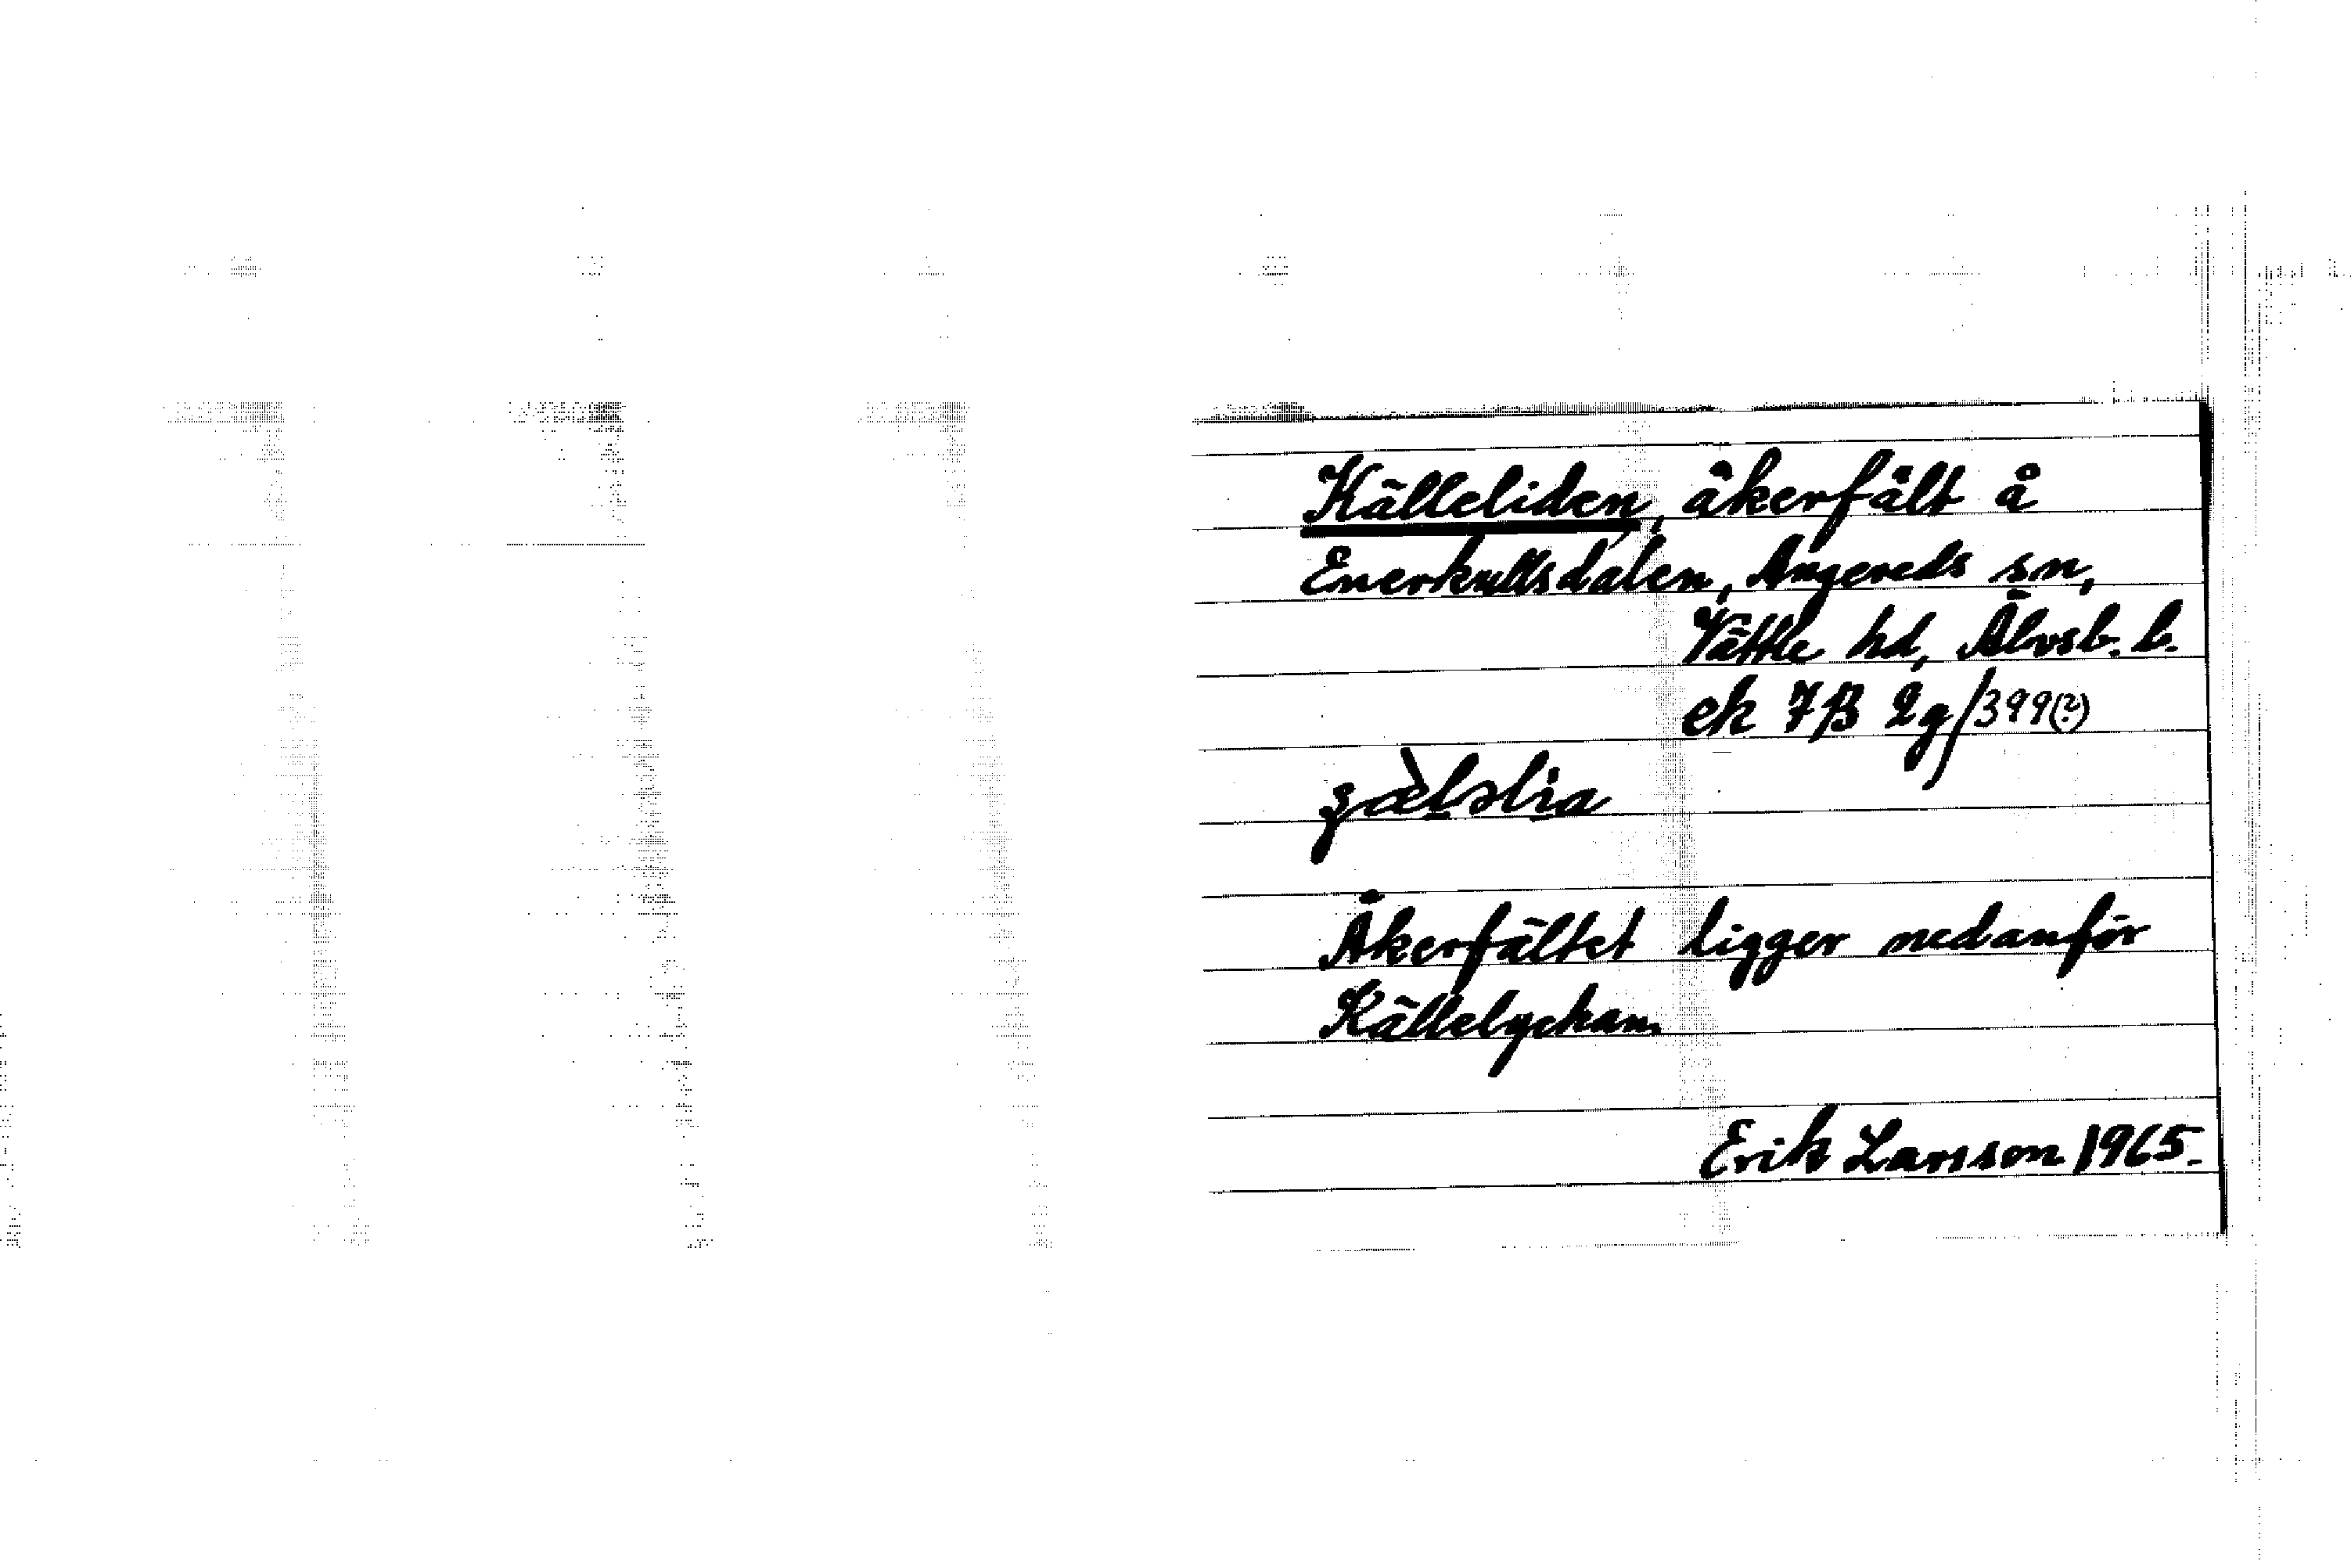 Källeliden, åkerfält å
Enerkullsdalen, Angereds sn,
Vättle hd, Älvsb. l.
ek 7B 2g/399(?)
Åkerfältet ligger nedanför
Källelyckan
Erik Larsson 1965.